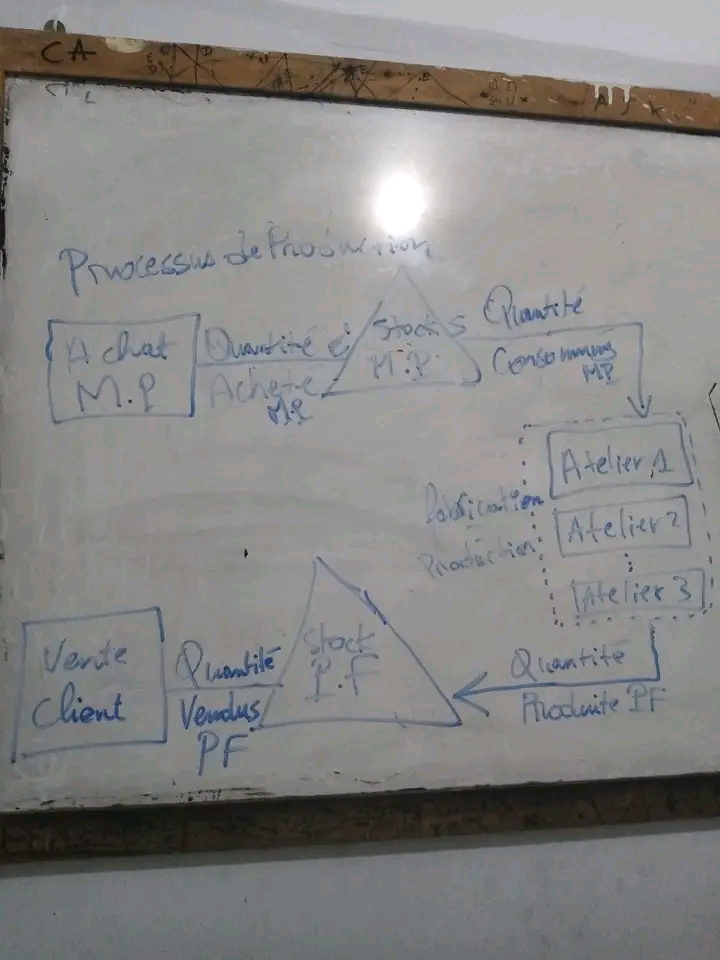 CA
A J K
Processus de Production
Achat
M.P
Quantité
Achete
M.P
Stocks
M.P
Quantité
Consommés
MP
Atelier 1
Atelier 2
Atelier 3
Fabrication
Production
Quantité
Produite PF
Stock
P.F
Quantité
Vendus
PF
Vente
Client